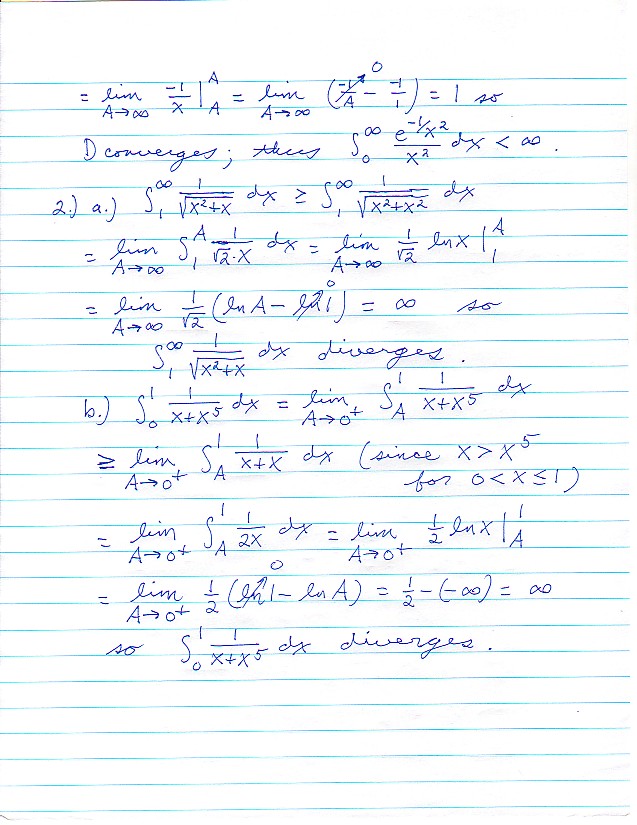 = lim_{A→∞} -1/x |_A^A = lim_{A→∞} (-1/A - -1/1) = 1 so
D converges ; thus ∫_0^∞ e^{-1/x^2}/x^2 dx < ∞ .
2.) a.) ∫_1^∞ 1/√(x^2+x) dx ≥ ∫_1^∞ 1/√(x^2+x^2) dx
= lim_{A→∞} ∫_1^A 1/(√2·x) dx = lim_{A→∞} 1/√2 ln x |_1^A
= lim_{A→∞} 1/√2 (ln A - ln 1) = ∞ so
∫_1^∞ 1/√(x^2+x) dx diverges .
b.) ∫_0^1 1/(x+x^5) dx = lim_{A→0^+} ∫_A^1 1/(x+x^5) dx
≥ lim_{A→0^+} ∫_A^1 1/(x+x) dx (since x > x^5
for 0 < x ≤ 1)
= lim_{A→0^+} ∫_A^1 1/(2x) dx = lim_{A→0^+} 1/2 ln x |_A^1
= lim_{A→0^+} 1/2 (ln 1 - ln A) = 1/2 - (-∞) = ∞
so ∫_0^1 1/(x+x^5) dx diverges .